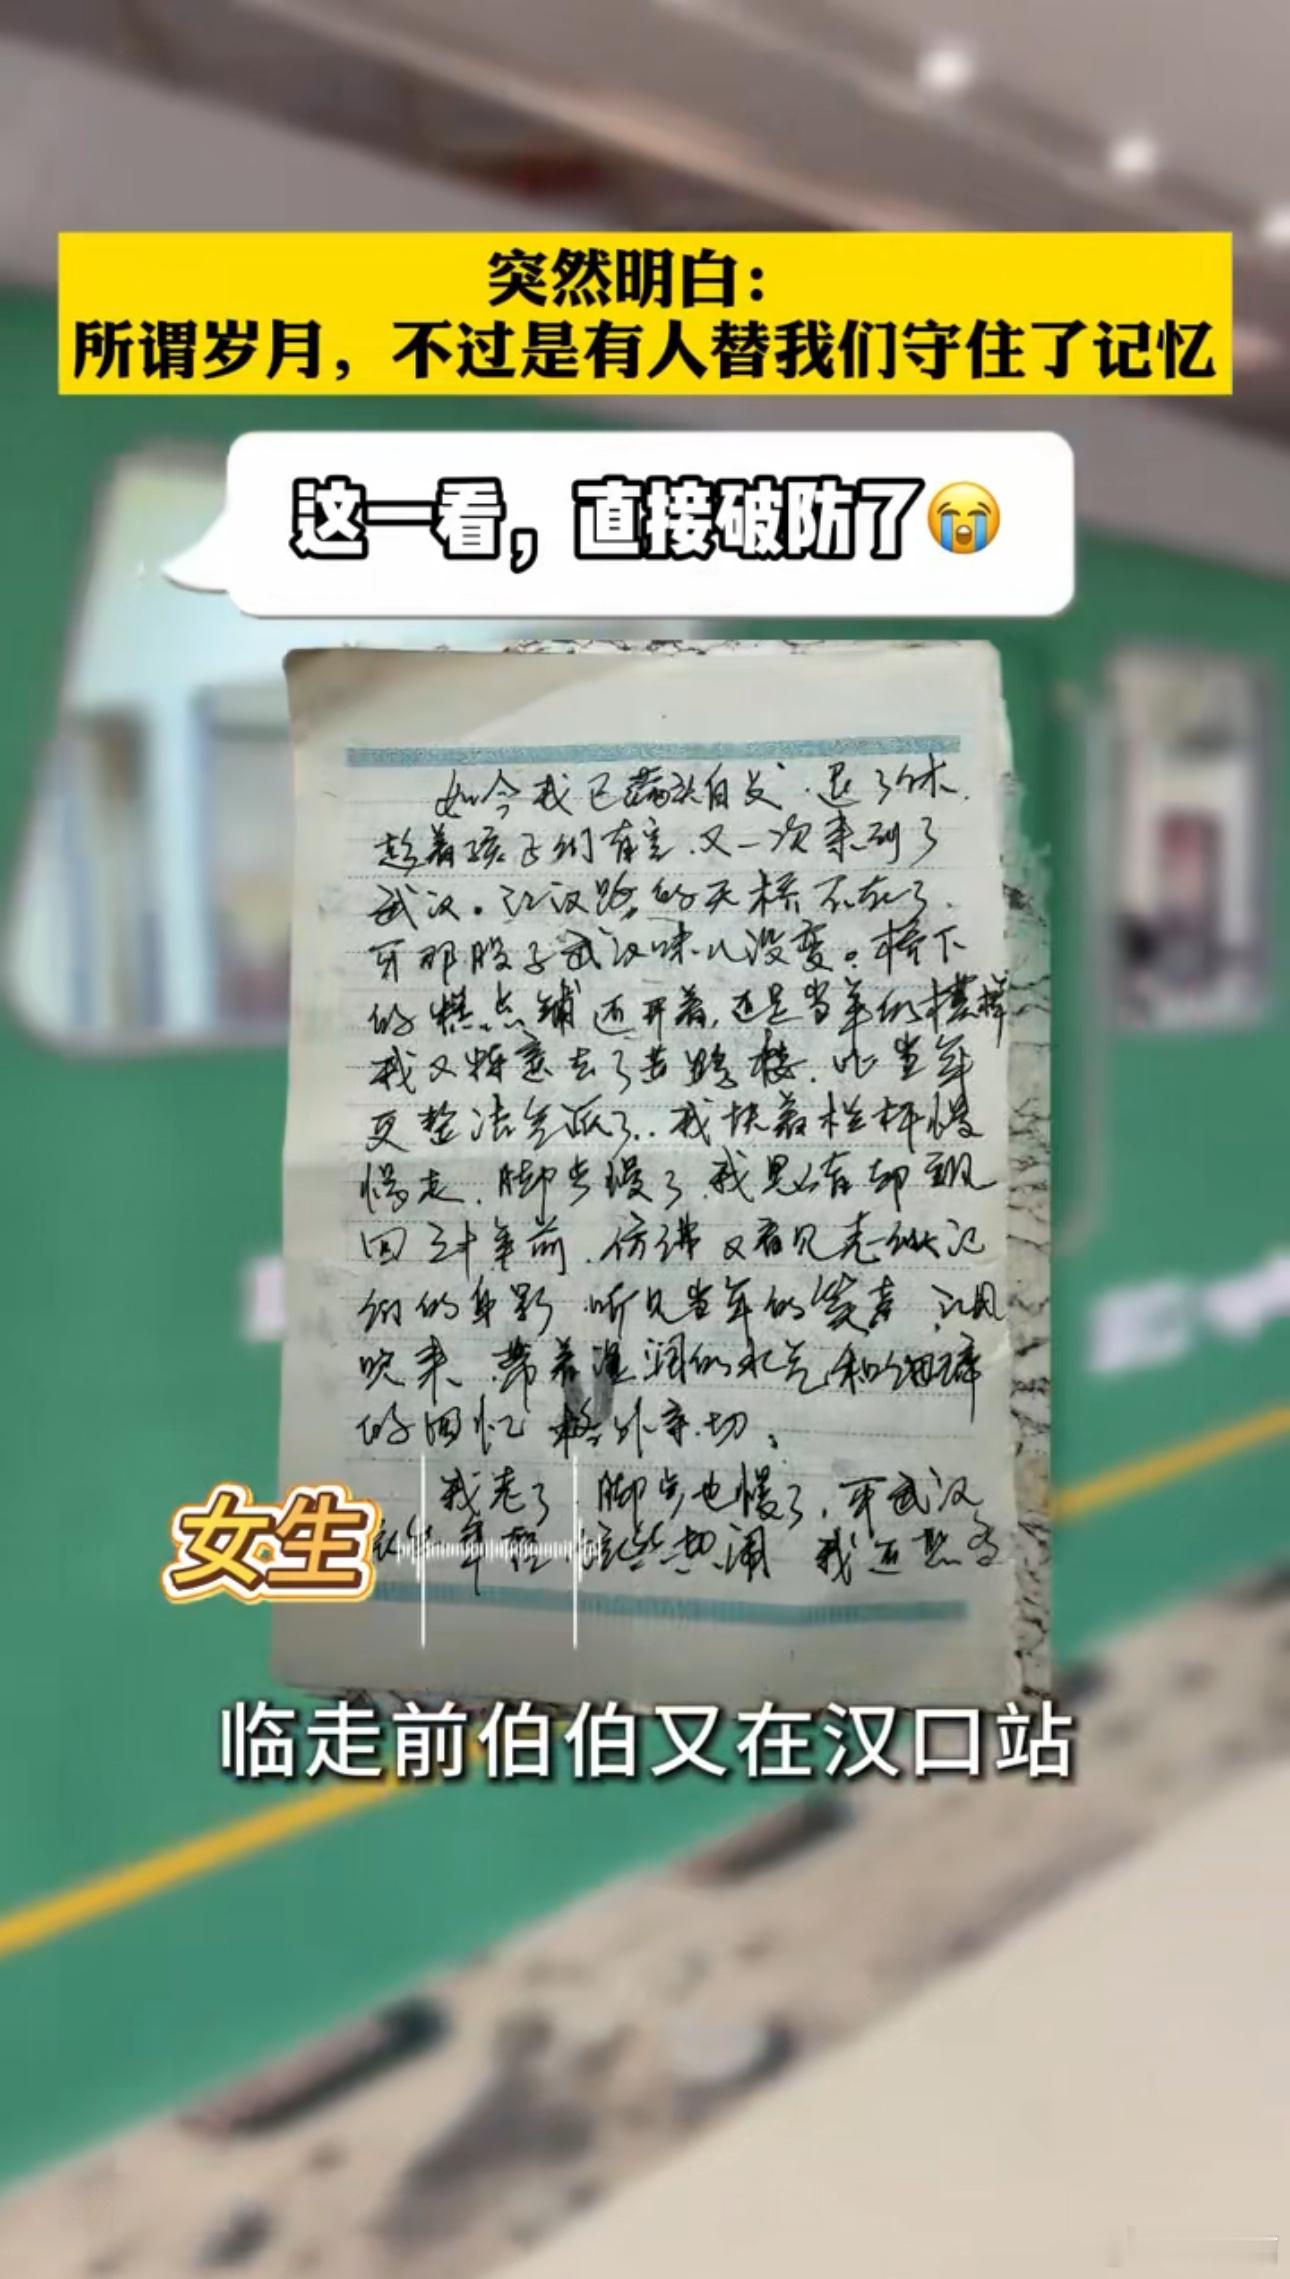 突然明白：
所谓岁月，不过是有人替我们守住了记忆
这一看，直接破防了😭
如今我已满头白发．退了休．
趁着孩子们有空．又一次来到了
武汉。江汉路的天桥不在了．
可那股子武汉味儿没变。桥下
的糕点铺还开着，还是当年的模样
我又特意去了黄鹤楼．比当年
更整洁气派了．我扶着栏杆慢
慢走．脚步慢了．我思绪却飘
回三十年前．仿佛又看见老伙记
们的身影．听见当年的笑声．江风
吹来、带着湿润的水气和细碎
的回忆 格外亲切。
我老了．脚步也慢了，可武汉
年轻 热闹 我还想
女生
临走前伯伯又在汉口站